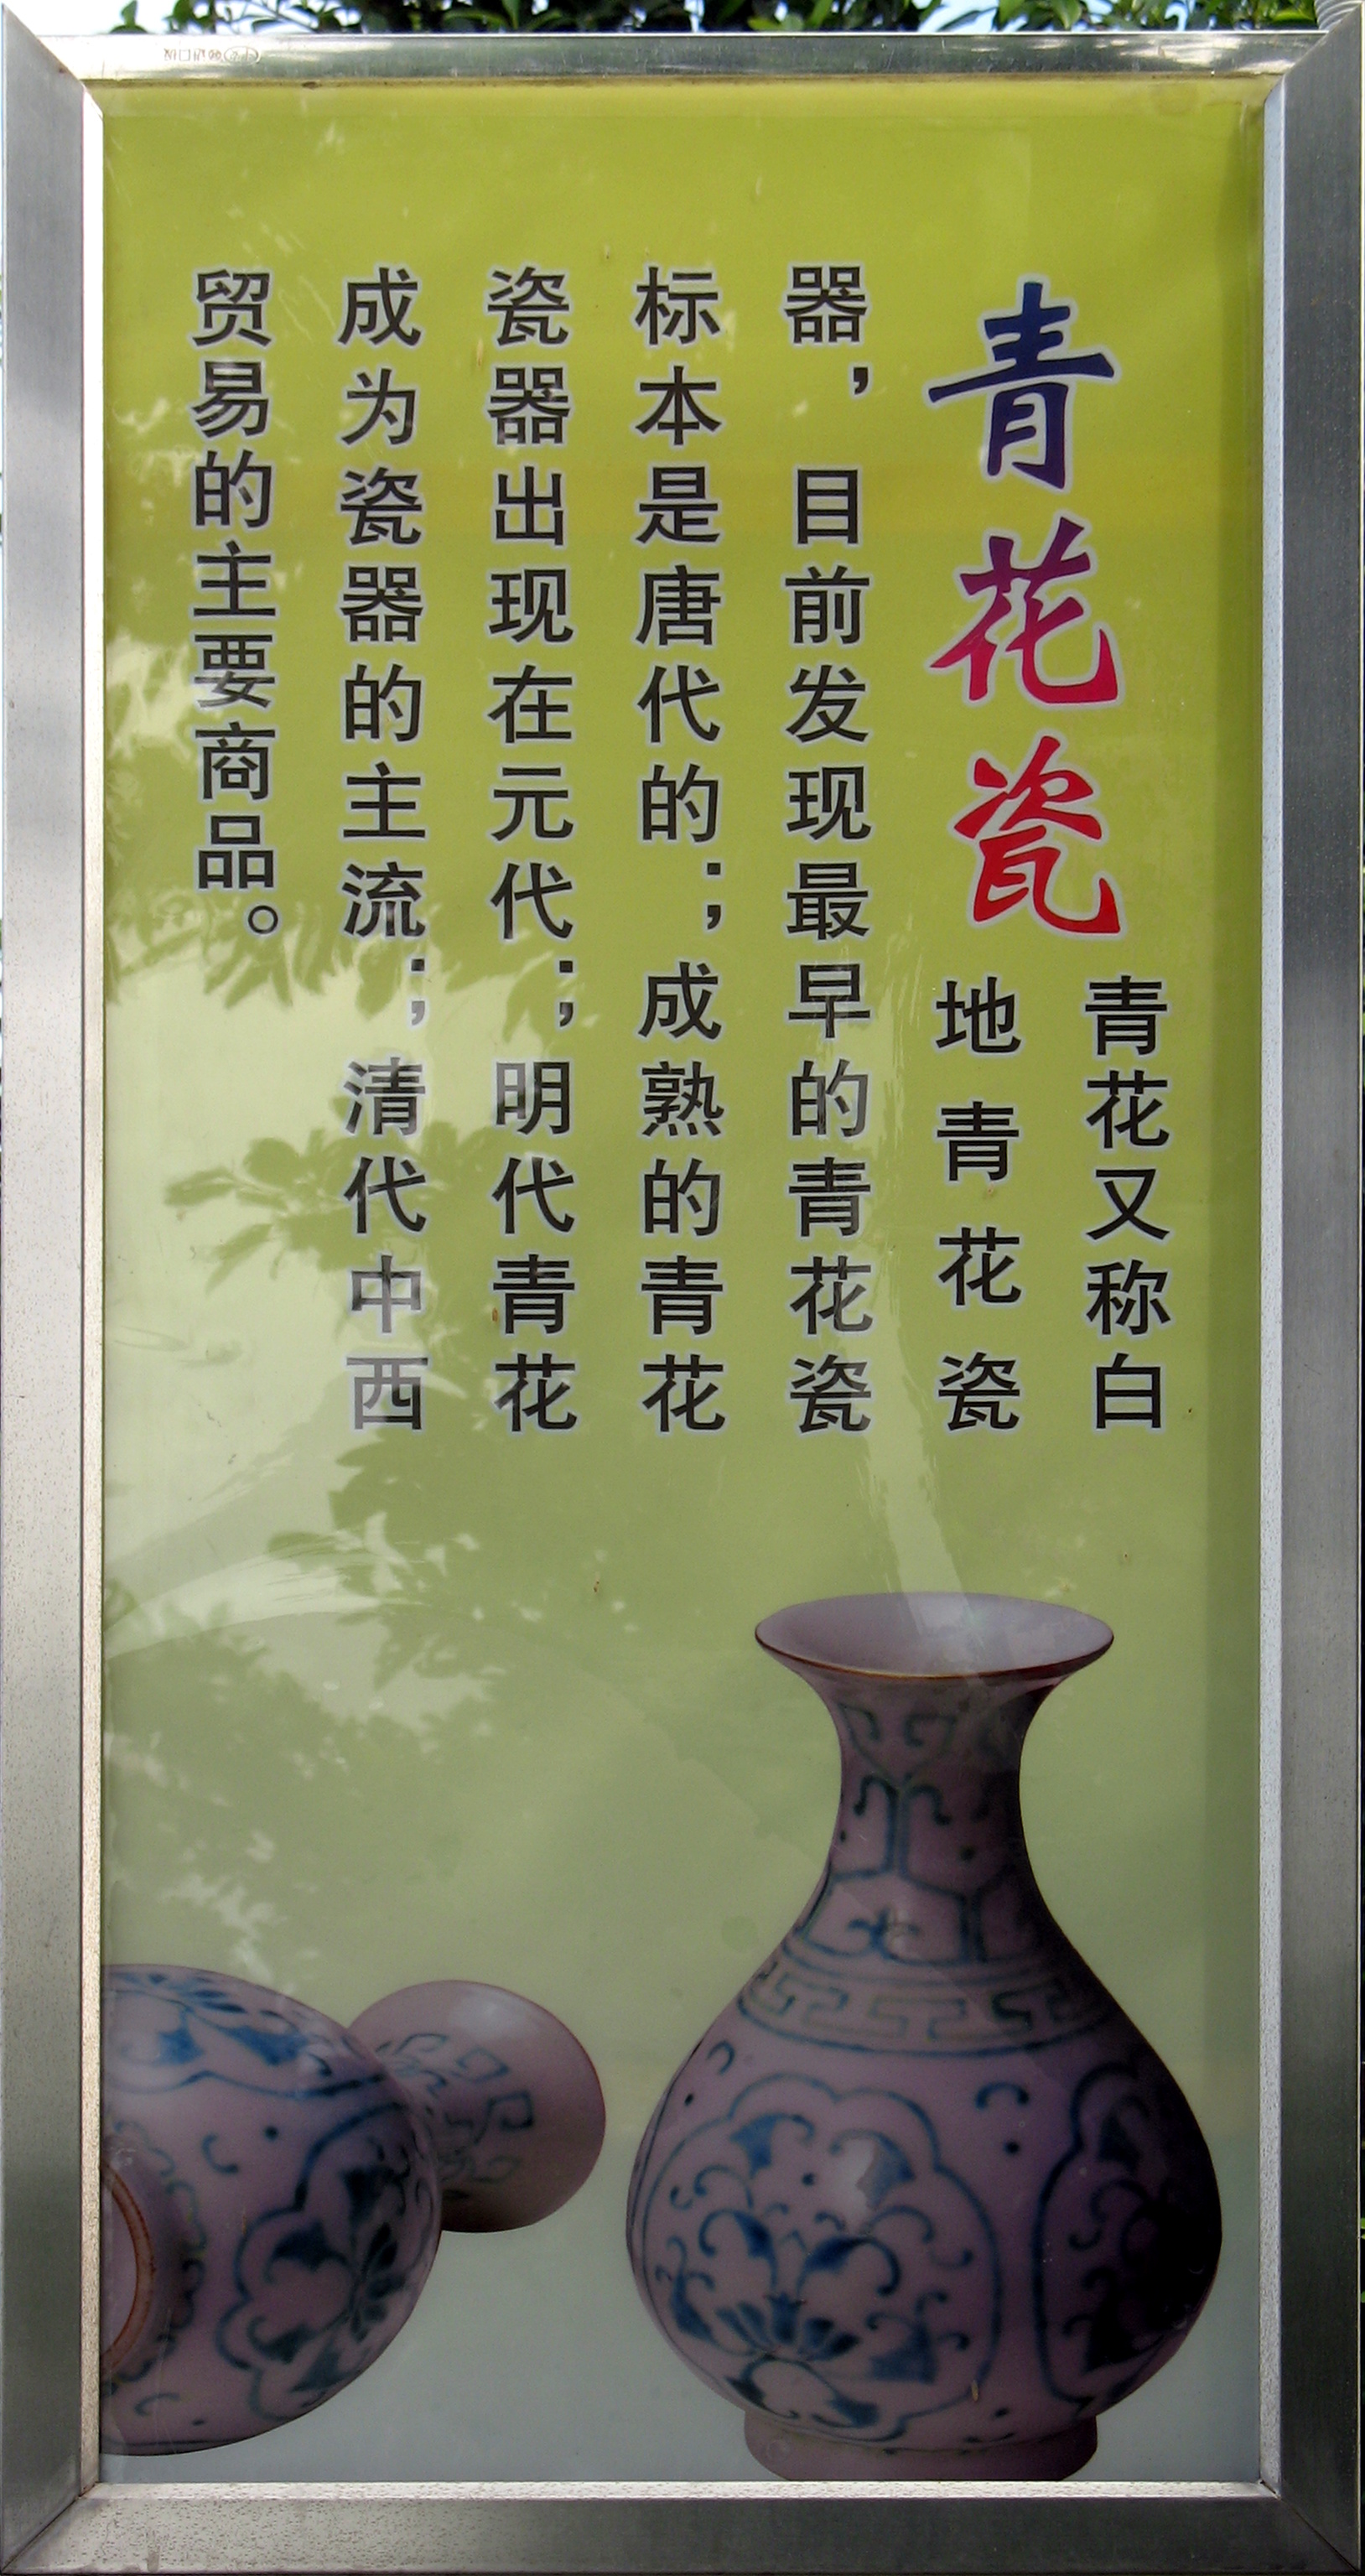 青花瓷
青花又称白
地青花瓷
器，目前发现最早的青花瓷
标本是唐代的；成熟的青花
瓷器出现在元代；明代青花
成为瓷器的主流；清代中西
贸易的主要商品。